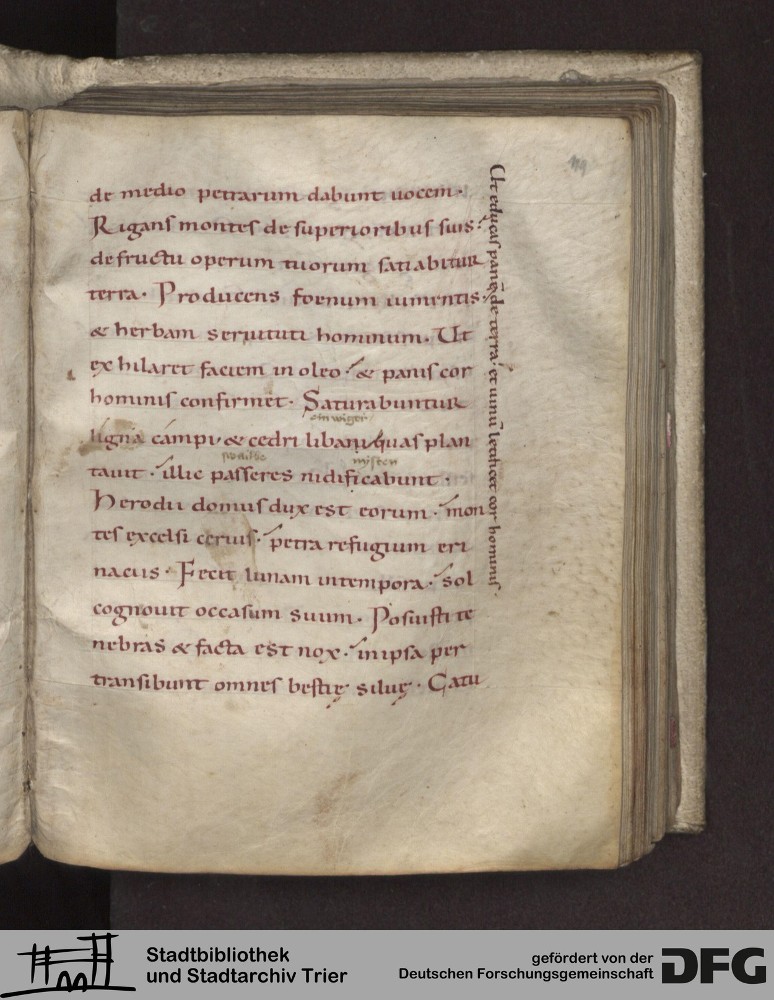 de medio petrarum dabunt uocem·
Rigans montes de superioribus suis·
de fructu operum tuorum satiabitur
terra· Producens foenum iumentis·
& herbam seruituti hominum· Ut
exhilaret faciem in oleo· & panis cor
hominis confirmet· Saturabuntur
ligna campi & cedri libani quas plan
tauit· illic passeres nidificabunt·
Herodii domus dux est eorum· mon
tes excelsi ceruis· petra refugium eri
naciis· Fecit lunam in tempora· sol
cognouit occasum suum· Posuisti te
nebras & facta est nox· in ipsa per
transibunt omnes bestię siluę· Catu
Ut educas panē de terra· et uinū letificet cor hominis·
119
Stadtbibliothek
und Stadtarchiv Trier
gefördert von der
Deutschen Forschungsgemeinschaft
DFG